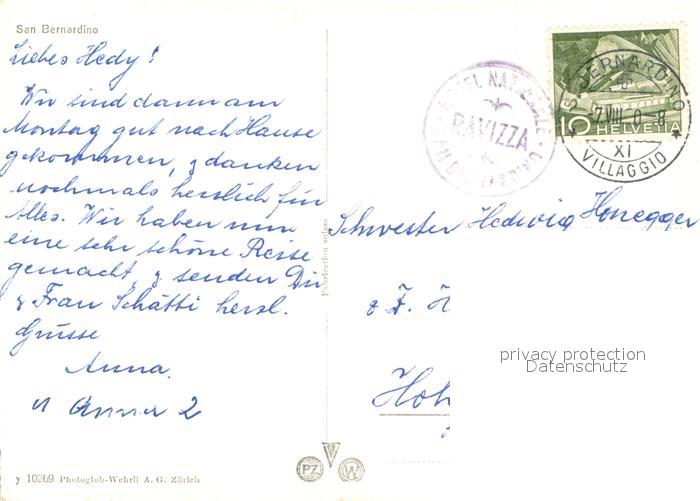 San Bernardino
Liebes Hedy!
Wir sind dann am
Montag gut nach Hause
gekommen, & danken
nochmals herzlich für
Alles. Wir haben nun
eine sehr schöne Reise
gemacht, & senden Dir
& Frau Schätti herzl.
Grüsse
Anna.
HOTEL NAZIONALE
RAVIZZA
SAN BERNARDINO
S. BERNARDINO
VIII
XI
VILLAGGIO
10 HELVETIA
Schwester Hedwig Honegger
z. Z.
Hoh
privacy protection
Datenschutz
PZ W
y 10269 Photoglob-Wehrli A. G. Zürich